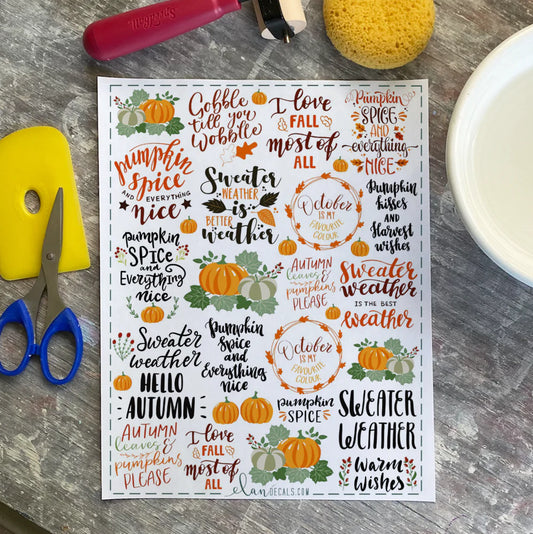 Gobble
till you
Wobble
I love
FALL
most of
ALL
Pumpkin
SPICE
AND
everything
NICE
pumpkin
spice
AND EVERYTHING
nice
Sweater
WEATHER
is
BETTER
weather
October
IS MY
FAVOURITE
COLOUR
Pumpkin
kisses
AND
Harvest
wishes
pumpkin
SPICE
and
Everything
nice
AUTUMN
leaves &
pumpkins
PLEASE
Sweater
weather
IS THE BEST
weather
Sweater
weather
Pumpkin
Spice
and
Everything
nice
October
IS MY
FAVOURITE
COLOUR
HELLO
AUTUMN
pumpkin
SPICE
SWEATER
WEATHER
AUTUMN
leaves &
pumpkins
PLEASE
I love
FALL
most of
ALL
Warm
wishes
elanDECALS.COM